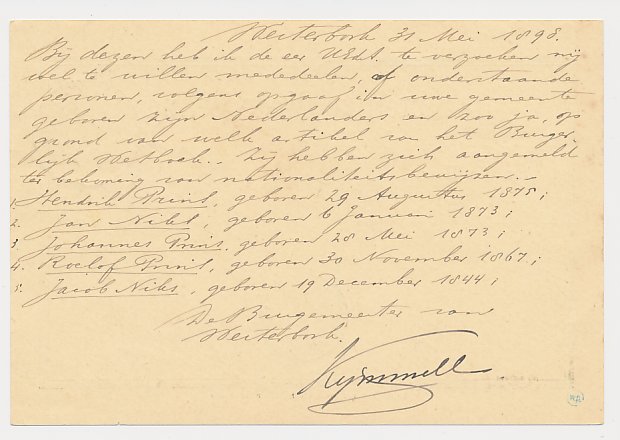 Westerbork 31 Mei 1898.
Bij dezen heb ik de eer UEdA. te verzoeken mij
wel te willen mededeelen, of onderstaande
personen, volgens opgaaf in uwe gemeente
geboren zijn Nederlanders en zoo ja, op
grond van welk artikel van het Burger
lijk Wetboek. Zij hebben zich aangemeld
ter bekoming van nationaliteitsbewijzen.
1. Hendrik Prins, geboren 29 Augustus 1875;
2. Jan Niks, geboren 6 Januari 1873;
3. Johannes Prins, geboren 28 Mei 1873;
4. Roelof Prins, geboren 30 November 1867;
5. Jacob Niks, geboren 19 December 1844;
De Burgemeester van
Westerbork.
Kymmell